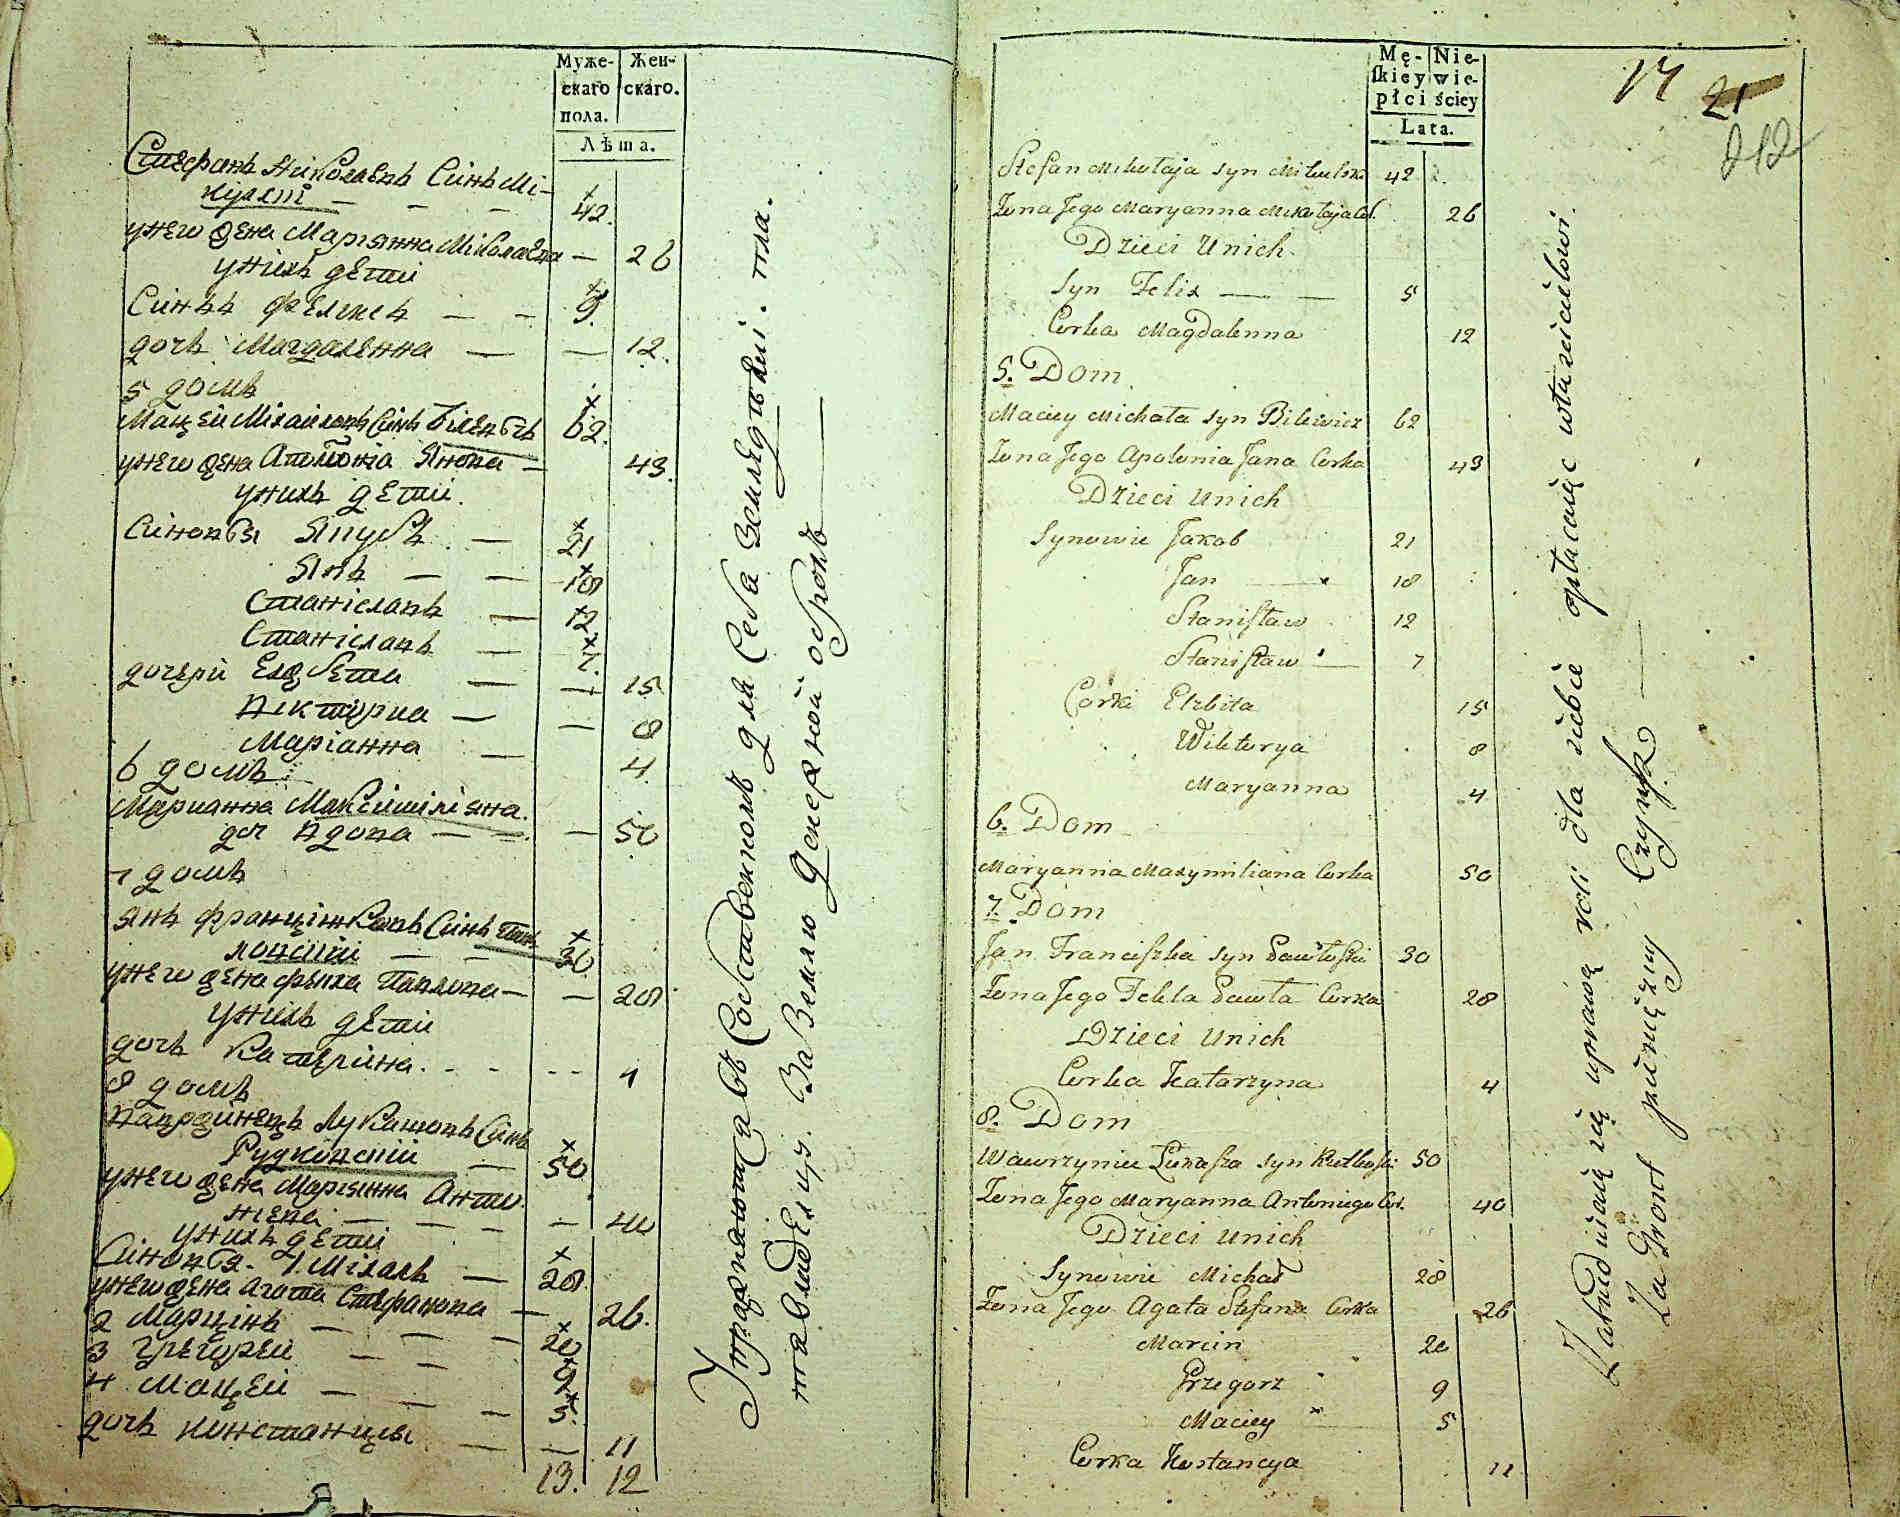 Муже-
скаго
пола.
Жен-
скаго.
Лѣта.
Стефанъ Николаевъ Синъ Мі-
кулскі — — — 42.
унего жена Маріянна Міколаева — 26
унихъ дети
Синъ Феликсъ — — 5.
дочь Магдаленна — — 12.
5 домъ
Мацѣй Міхаиловъ Синъ Білевичъ 62.
унего жена Аполонія Янова — 43.
унихъ дети.
Синовья Якубъ — 21
Янъ — — 18
Станіславъ — 12
Станіславъ — 7.
дочери Елжбета — — 15
Викторія — — 8
Маріанна — 4.
6 домъ
Марианна Максиміліяна
доч вдова — — — 50
7 домъ
Янъ Францішковъ Синъ Пав-
ловский — — 30
унего жена Фекла Павлова — — 28
унихъ дети
дочь Катерина. - - - - 4
8 домъ
Вавржинецъ Лукашовъ Синъ
Рудковский — 50
унего жена Маріянна Анто-
ніева — — — — 40
унихъ дети
Синовья. 1. Міхалъ — 28
унего жена Агата Стефанова — 26.
2 Марцінъ — — — 20
3 Грегорей — — 9
4 Мацѣй — — 5
дочь Констанція — — 11
13. 12
Упражняются въ
для Себя
За Землю денежной оброкъ
Mę-
skiey
płci
Nie-
wie-
ściey
Lata.
17 21
212
Stefan Mikołaja syn Mikulski 42
Zona Jego Maryanna Mikołaja Cor. 26
Dzieci Unich
Syn Felix — — 5
Corka Magdalenna 12
5. Dom
Maciey Michała syn Bilewicz 62
Zona Jego Apolonia Jana Corka 43
Dzieci Unich
Synowie Jakob 21
Jan — 18
Stanisław 12
Stanisław — 7
Corki Elzbita 15
Wiktorya 8
Maryanna 4
6. Dom
Maryanna Maxymiliana Corka 50
7. Dom
Jan Franciszka syn Pawłoski 30
Zona Jego Tekla Pawła Corka 28
Dzieci Unich
Corka Katarzyna 4
8. Dom
Wawrzyniec Łukasza syn Rutkoski 50
Zona Jego Maryanna Antoniego Cor. 40
Dzieci Unich
Synowie Michał 28
Zona Jego Agata Stefana Corka 26
Marcin 20
Grzegorz 9
Maciey 5
Corka Kostancya 11
Zatrudniaią się uprawą roli dla siebie opłacaiąc właścicielowi
Za Gront pieniężny Czynsz —